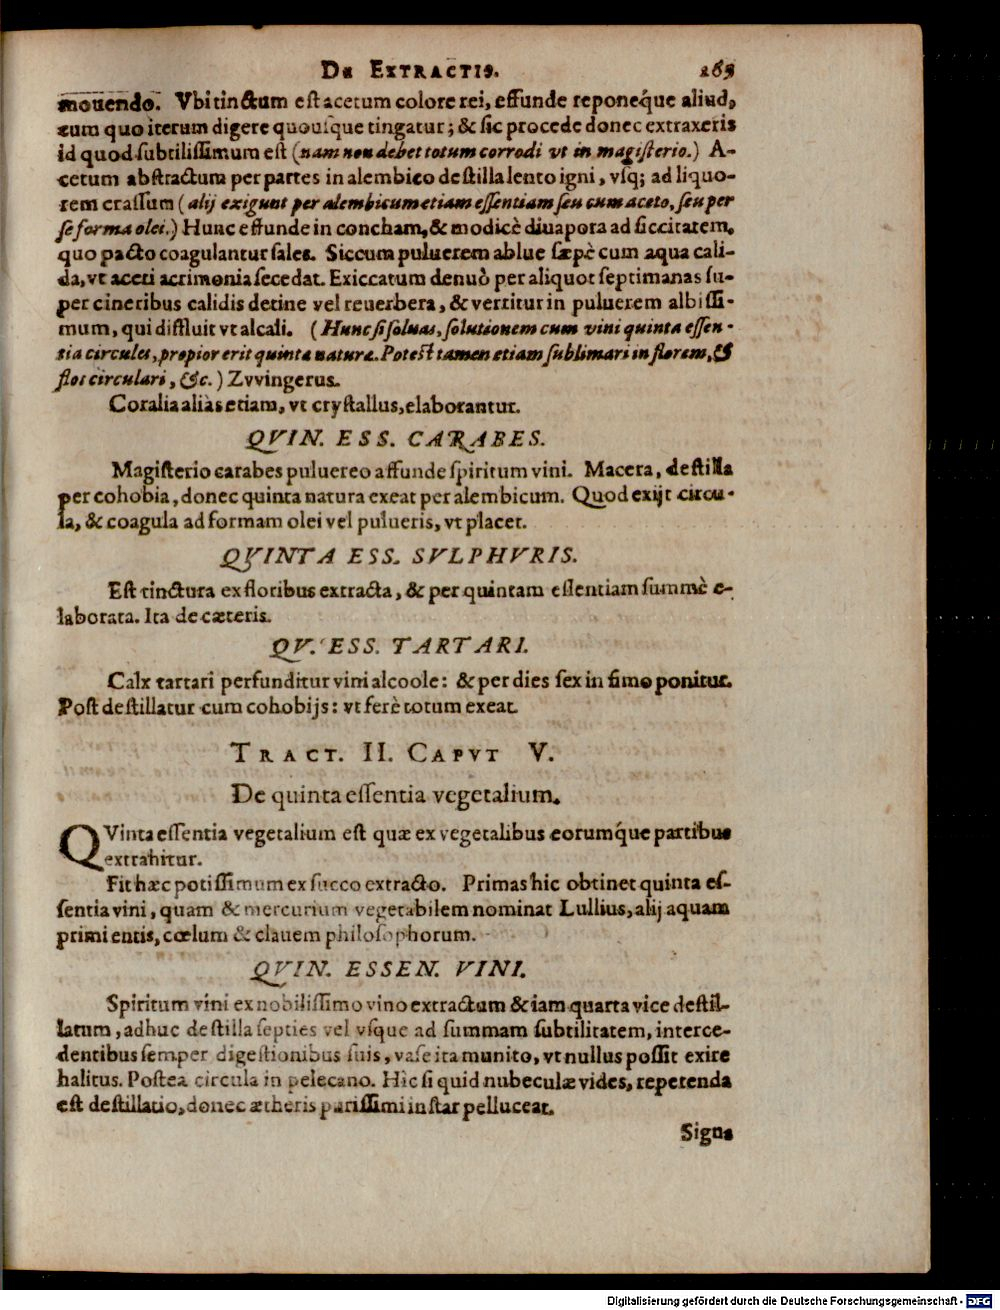 DE EXTRACTIS. 265
mouendo. Vbi tinctum est acetum colore rei, effunde reponéque aliud,
cum quo iterum digere quousque tingatur; & sic procede donec extraxeris
id quod subtilissimum est (nam non debet totum corrodi vt in magisterio.) A-
cetum abstractum per partes in alembico destilla lento igni, vsq; ad liquo-
rem crassum (alij exigunt per alembicum etiam essentiam seu cum aceto, seu per
se forma olei.) Hunc effunde in concham, & modicè diuapora ad siccitatem,
quo pacto coagulantur sales. Siccum puluerem ablue sæpè cum aqua cali-
da, vt aceti acrimonia secedat. Exiccatum denuò per aliquot septimanas su-
per cineribus calidis detine vel reuerbera, & vertitur in puluerem albissi-
mum, qui diffluit vt alcali. (Hunc si soluas, solutionem cum vini quinta essen-
tia circules, propior erit quinta natura. Potest tamen etiam sublimari in florem, &
flos circulari, &c.) Zvvingerus.
Coralia aliàs etiam, vt crystallus, elaborantur.
QVIN. ESS. CARABES.
Magisterio carabes puluereo affunde spiritum vini. Macera, destilla
per cohobia, donec quinta natura exeat per alembicum. Quod exijt circu-
la, & coagula ad formam olei vel pulueris, vt placet.
QVINTA ESS. SVLPHVRIS.
Est tinctura ex floribus extracta, & per quintam essentiam summè e-
laborata. Ita de cæteris.
QV. ESS. TARTARI.
Calx tartari perfunditur vini alcoole: & per dies sex in fimo ponitur.
Post destillatur cum cohobijs: vt ferè totum exeat.
TRACT. II. CAPVT V.
De quinta essentia vegetalium.
QVinta essentia vegetalium est quæ ex vegetalibus eorumq́ue partibus
extrahitur.
Fit hæc potissimum ex succo extracto. Primas hic obtinet quinta es-
sentia vini, quam & mercurium vegetabilem nominat Lullius, alij aquam
primi entis, cœlum & clauem philosophorum.
QVIN. ESSEN. VINI.
Spiritum vini ex nobilissimo vino extractum & iam quarta vice destil-
latum, adhuc destilla septies vel vsque ad summam subtilitatem, interce-
dentibus semper digestionibus suis, vase ita munito, vt nullus possit exire
halitus. Postea circula in pelecano. Hic si quid nubeculæ vides, repetenda
est destillatio, donec ætheris purissimi instar pelluceat.
Signa
Digitalisierung gefördert durch die Deutsche Forschungsgemeinschaft - DFG